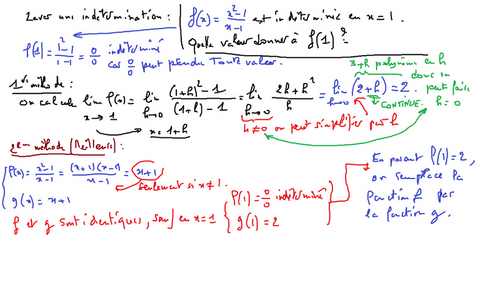 Lever une indétermination :
f(x) = x²-1/x-1 est indéterminée en x = 1.
Quelle valeur donner à f(1) ?
f(1) = 1²-1/1-1 = 0/0 indéterminé
car 0/0 peut prendre toute valeur.
1ère méthode :
on calcule lim f(x) = lim (1+h)²-1/(1+h)-1 = lim 2h+h²/h = lim (2+h) = 2.
x → 1 h→0 h→0 h→0
x = 1+h
h≠0 on peut simplifier par h
2+h polynôme en h
donc
CONTINUE.
peut faire
h = 0
2ème méthode (Meilleure) :
f(x) = x²-1/x-1 = (x+1)(x-1)/x-1 = x+1
seulement si x≠1.
g(x) = x+1
f et g sont identiques, sauf en x=1
f(1) = 0/0 indéterminé
g(1) = 2
En posant f(1) = 2,
on remplace la
fonction f par
la fonction g.